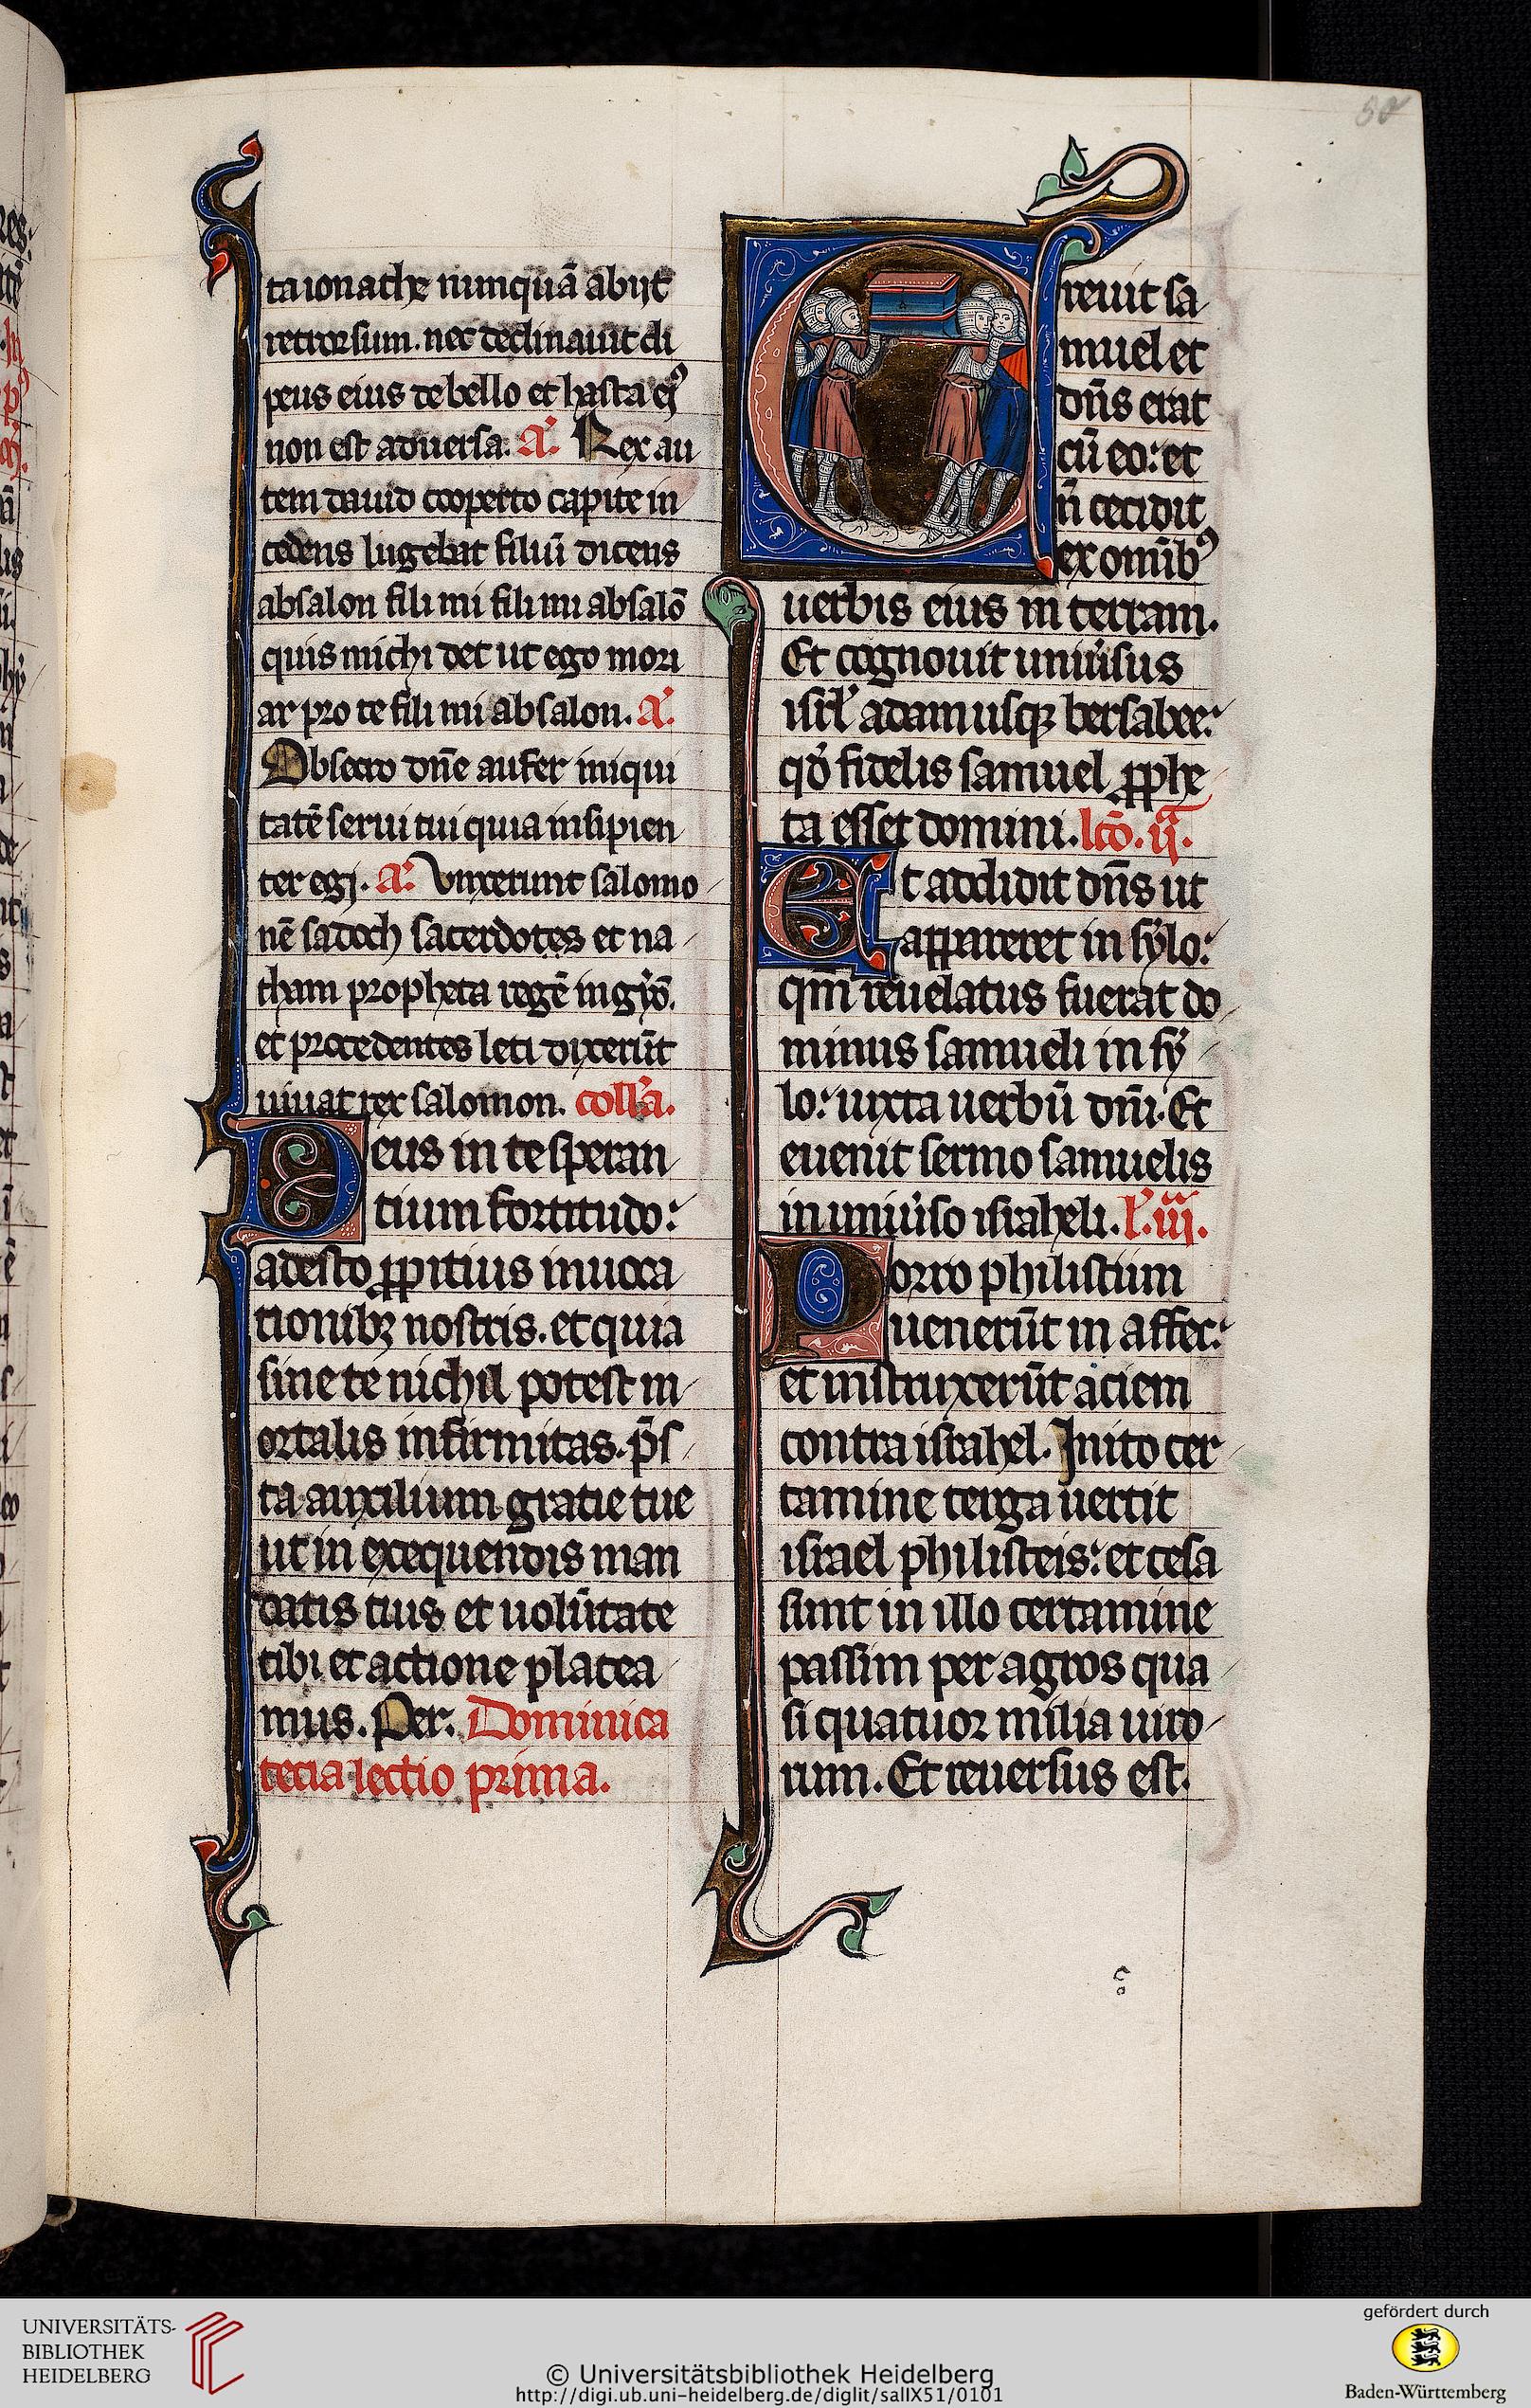 ta ionathe nunquā abijt
retrorsum. nec declinauit cli
peus eius de bello et hasta ej᷒
non est aduersa. a͛. Rex au
tem dauid cooperto capite in
cedens lugebat filiū dicens
absalon fili mi fili mi absalō
quis michi det ut ego mori
ar pro te fili mi absalon. a͛.
Obsecro dn̄e aufer iniqui
tatē serui tui quia insipien
ter egj. a͛. Vnxerunt salomo
nē sadoch sacerdotes et na
tham propheta regē in gyō.
et procedentes leti dixerūt
uiuat rex salomon. coll'a.
Deus in te speran
tium fortitudo:
adesto ꝓpitius inuoca
tionibꝫ nostris. et quia
sine te nichil potest m
ortalis infirmitas. p̄s
ta auxilium gratie tue
ut in exequendis man
datis tuis et uolūtate
tibi et actione placea
mus. Per. Dominica
tecia lectio prima.
Creuit sa
muel et
dn̄s erat
cū eo: et
n̄ cecidit
ex omib᷒
uerbis eius in terram.
Et cognouit uniu'sus
isrl' a dam usqꝫ bersabee:
qd' fidelis samuel ꝓphe
ta esset domini. lcō. ij.
Et addidit dn̄s ut
appareret in sylo:
qm̄ reuelatus fuerat do
minus samueli in sy
lo: iuxta uerbū dn̄i. Et
euenit sermo samuelis
in uniu'so israheli. l'. iij.
Porro philistiim
uenerūt in affec:
et instruxerūt aciem
contra israhel. Inito cer
tamine terga uertit
israel philisteis: et cesa
sunt in illo certamine
passim per agros qua
si quatuor milia uiro
rum. Et reuersus est.
UNIVERSITÄTS-
BIBLIOTHEK
HEIDELBERG
© Universitätsbibliothek Heidelberg
http://digi.ub.uni-heidelberg.de/diglit/salIX51/0101
gefördert durch
Baden-Württemberg